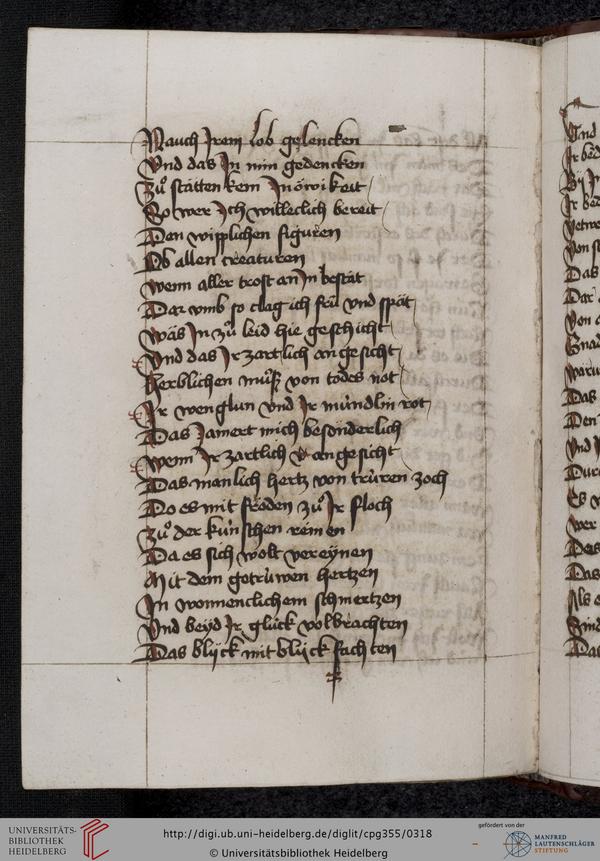 Nauch Irem lob gelencken
Vnd das In min gedencken
Zuͦ stätten kem In öwikeit
So wer Ich willeclich bereit
Den wipplichen figuren
Ob allen creaturen
wenn aller trost an In bestät
Dar vmb so clag ich frü vnd spät
wäs In zuͦ leid hie geschicht
Vnd das Ir zartlich angesicht
herblichen muͦß von todes not
Ir wenglun vnd Ir mündlin rot
Das Jamert mich besonderlich
wenn Ir zartlich angesicht
Das manlich hertz von trüren zoch
Do es mit fröden zuͦ Ir floch
Zuͦ der künschen reinen
Da es sich wolt vereynen
Mit dem getrüwen hertzen
In wonnenclichem schmertzen
Vnd beyd Ir glück volbrachten
Das blijck mit blijck fachten
UNIVERSITÄTS-
BIBLIOTHEK
HEIDELBERG
http://digi.ub.uni-heidelberg.de/diglit/cpg355/0318
© Universitätsbibliothek Heidelberg
gefördert von der
MANFRED
LAUTENSCHLÄGER
STIFTUNG